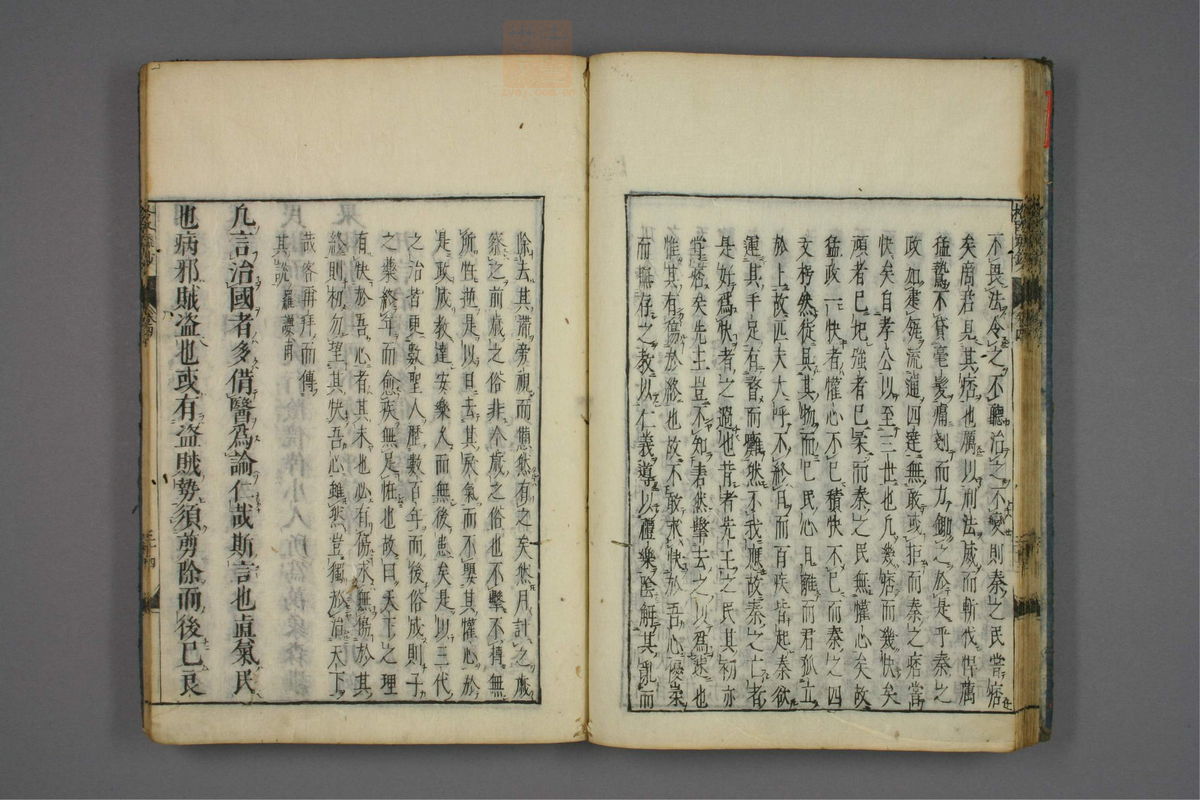 不畏法令之不聽治之不變則秦之民嘗痞
矣商君見其痞也厲以刑法威而斬伐悍厲
猛鷙不貸毫髮痛剗而力鋤之於是乎秦之
政如建瓴流通四達無敢或拒而秦之痞嘗
快矣自孝公以至二世也凡幾痞而幾快矣
頑者已圯強者已柔而秦之民無懽心矣故
猛政一快者懽心不已積快不已而秦之四
支枵然徒具其物而已民心且離而君孤立
於上故匹夫大呼不終日而百疾皆起秦欲
運其手足有膂而難然不我應故秦之亡者
是好為快者之過也昔者先王之民其初亦
嘗痞矣先王豈不知砉然擊去之以為速也
惟其有傷於終也故不敢求快於吾心優崇
而撫存之教以仁義導以禮樂陰解其亂而
除去其滯旁視而懣然有之矣然月計之歲
察之前歲之俗非今歲之俗也不擊不搏無
所忤逆是以日去其戾氣而不嬰其懽心於
是政成教達安樂久而無後患矣是以三代
之治皆更數聖人歷數百年而後俗成則予
之藥終年而愈疾無足怪也故曰天下之理
有快於吾心者其末也必有傷求無傷於其
終則初勿望其快吾心雖然豈獨於治天下
哉客再拜而傳
其說
凡言治國者多借醫為論仁哉斯言也眞氣民
也病邪賊盗也或有盗賊勢須剪除而後已良